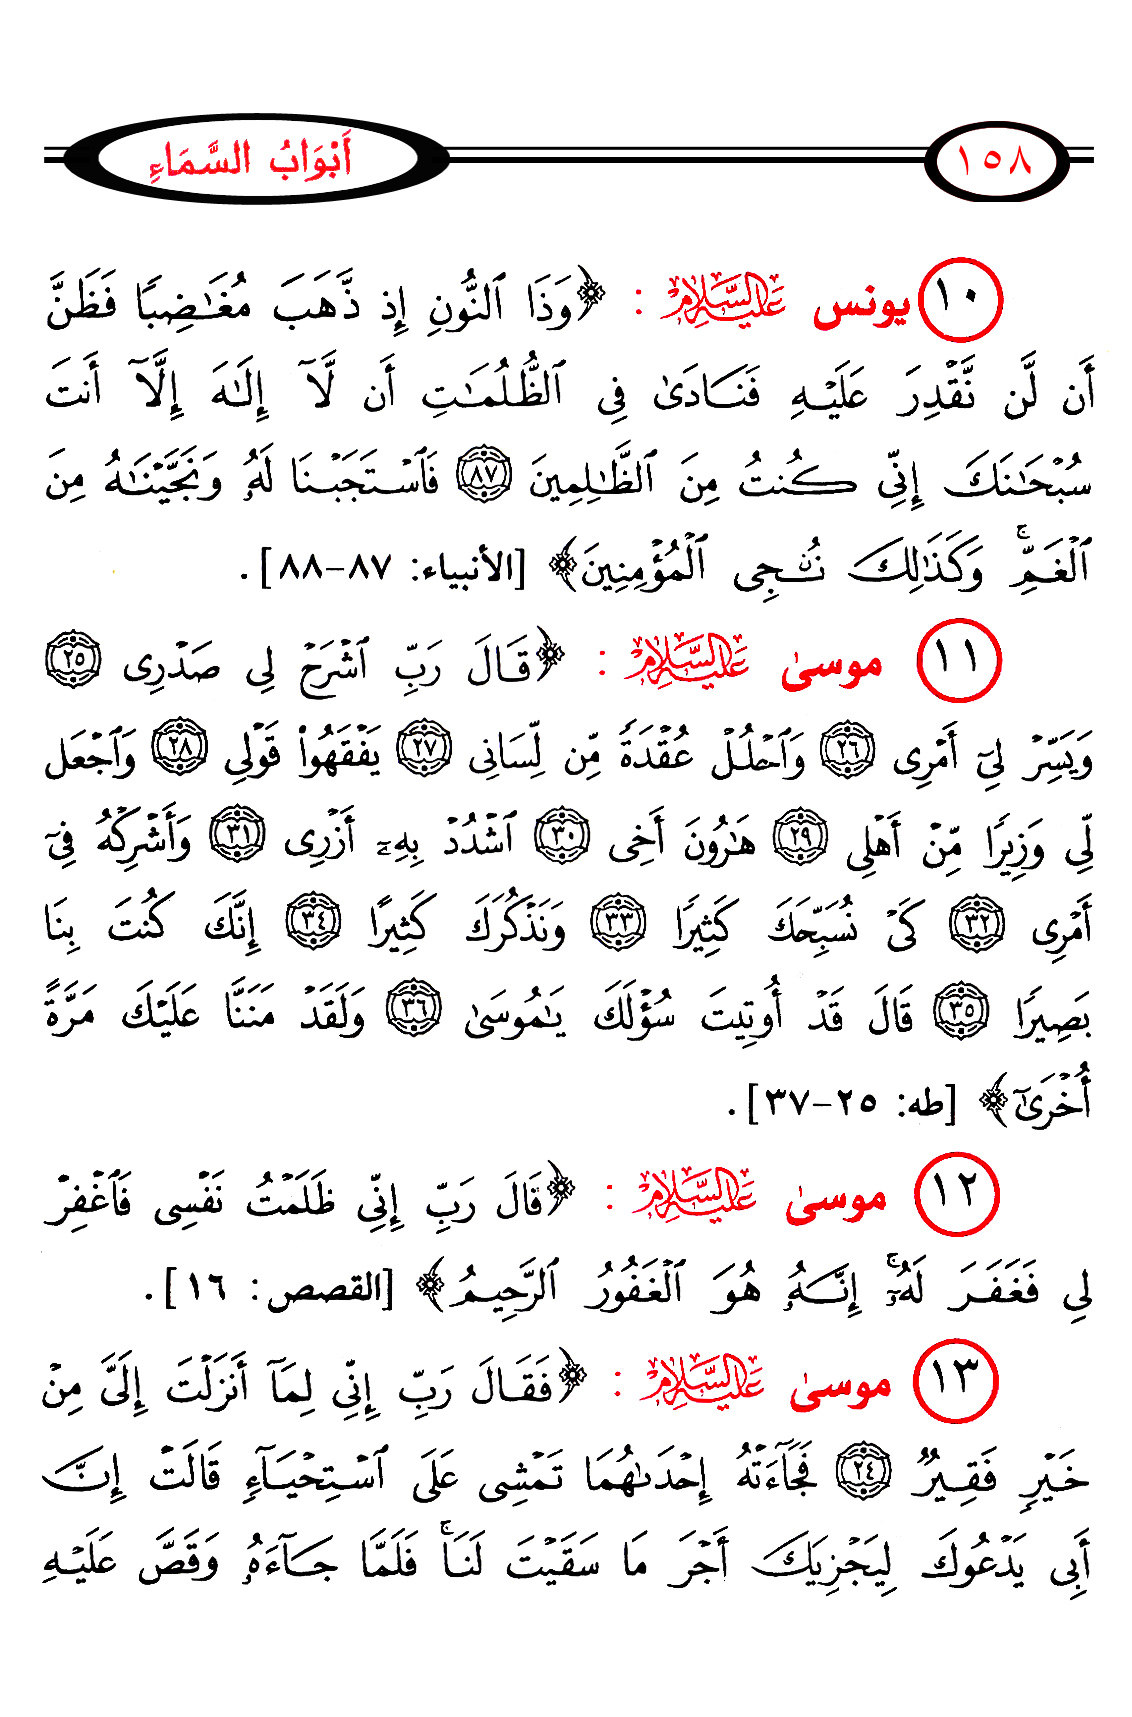 ١٥٨ أَبْوَابُ السَّمَاءِ
١٠ يونس عَلَيْهِ السَّلَام : ﴿وَذَا ٱلنُّونِ إِذ ذَّهَبَ مُغَٰضِبًا فَظَنَّ
أَن لَّن نَّقْدِرَ عَلَيْهِ فَنَادَىٰ فِى ٱلظُّلُمَٰتِ أَن لَّآ إِلَٰهَ إِلَّآ أَنتَ
سُبْحَٰنَكَ إِنِّى كُنتُ مِنَ ٱلظَّٰلِمِينَ ٨٧ فَٱسْتَجَبْنَا لَهُۥ وَنَجَّيْنَٰهُ مِنَ
ٱلْغَمِّ ۚ وَكَذَٰلِكَ نُۨجِى ٱلْمُؤْمِنِينَ﴾ [الأنبياء: ٨٧-٨٨].
١١ موسىٰ عَلَيْهِ السَّلَام : ﴿قَالَ رَبِّ ٱشْرَحْ لِى صَدْرِى ٢٥
وَيَسِّرْ لِىٓ أَمْرِى ٢٦ وَٱحْلُلْ عُقْدَةً مِّن لِّسَانِى ٢٧ يَفْقَهُوا۟ قَوْلِى ٢٨ وَٱجْعَل
لِّى وَزِيرًا مِّنْ أَهْلِى ٢٩ هَٰرُونَ أَخِى ٣٠ ٱشْدُدْ بِهِۦٓ أَزْرِى ٣١ وَأَشْرِكْهُ فِىٓ
أَمْرِى ٣٢ كَىْ نُسَبِّحَكَ كَثِيرًا ٣٣ وَنَذْكُرَكَ كَثِيرًا ٣٤ إِنَّكَ كُنتَ بِنَا
بَصِيرًا ٣٥ قَالَ قَدْ أُوتِيتَ سُؤْلَكَ يَٰمُوسَىٰ ٣٦ وَلَقَدْ مَنَنَّا عَلَيْكَ مَرَّةً
أُخْرَىٰٓ﴾ [طه: ٢٥-٣٧].
١٢ موسىٰ عَلَيْهِ السَّلَام : ﴿قَالَ رَبِّ إِنِّى ظَلَمْتُ نَفْسِى فَٱغْفِرْ
لِى فَغَفَرَ لَهُۥٓ ۚ إِنَّهُۥ هُوَ ٱلْغَفُورُ ٱلرَّحِيمُ﴾ [القصص: ١٦].
١٣ موسىٰ عَلَيْهِ السَّلَام : ﴿فَقَالَ رَبِّ إِنِّى لِمَآ أَنزَلْتَ إِلَىَّ مِنْ
خَيْرٍ فَقِيرٌ ٢٤ فَجَآءَتْهُ إِحْدَىٰهُمَا تَمْشِى عَلَى ٱسْتِحْيَآءٍ قَالَتْ إِنَّ
أَبِى يَدْعُوكَ لِيَجْزِيَكَ أَجْرَ مَا سَقَيْتَ لَنَا ۚ فَلَمَّا جَآءَهُۥ وَقَصَّ عَلَيْهِ